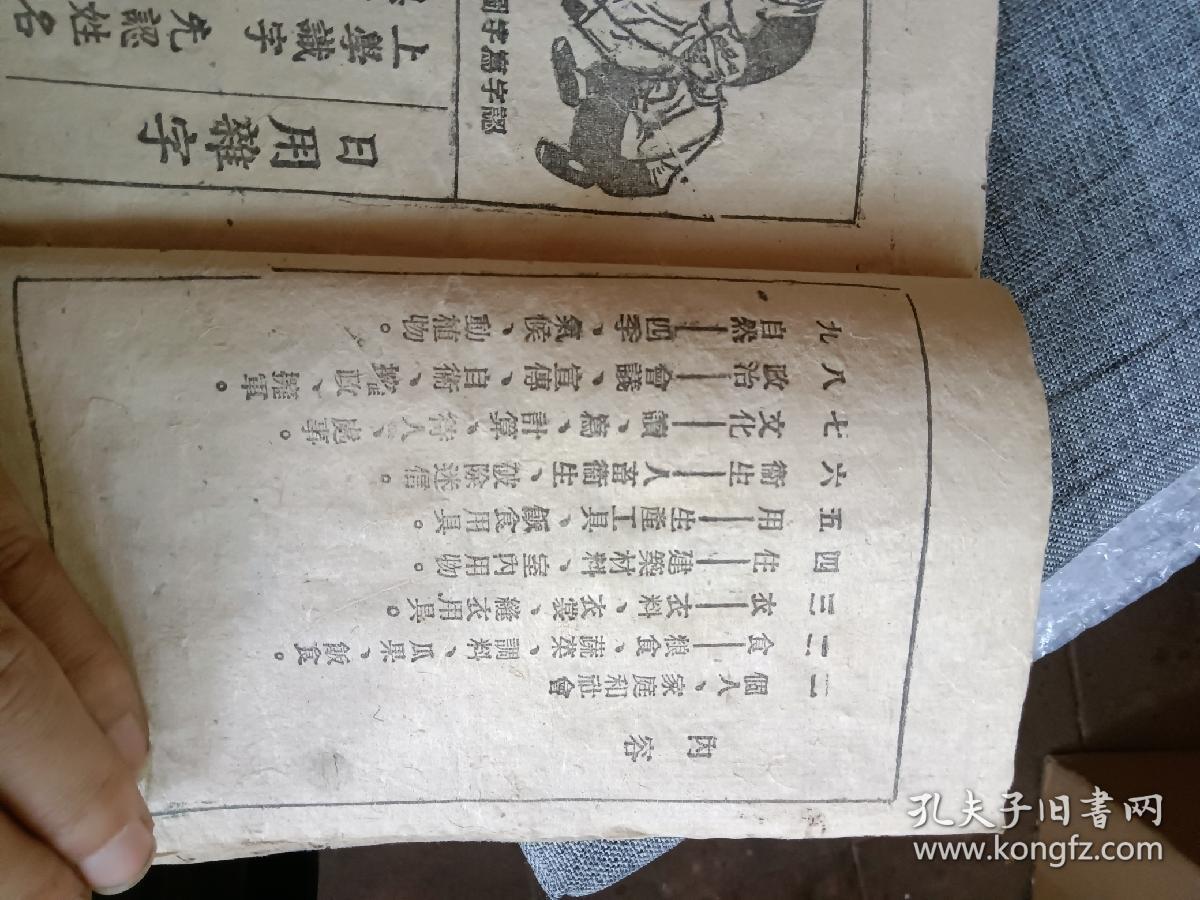 內容
一 個人、家庭和社會
二 食——粮食、蔬菜、調料、瓜果、飯食。
三 衣——衣料、衣裳、縫衣用具。
四 住——建築材料、室內用物。
五 用——生產工具、飯食用具。
六 衛生——人畜衛生、破除迷信。
七 文化——讀、寫、計算、待人、處事。
八 政治——會議、宣傳、自衛、擁政、擁軍。
九 自然——四季、氣候、動植物。
日用雜字
上學識字 先認姓名
孔夫子旧書网
www.kongfz.com